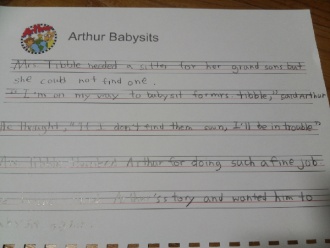 Arthur Babysits
Mrs. Tibble needed a sitter for her grand sons but
she could not find one.
"I'm on my way to babysit for mrs. tibble," said Arthur
He thought, "If I don't find them own, I'll be in trouble"
Mrs Tibble thanked Arthur for doing such a fine job
Arthur's story and wanted him to